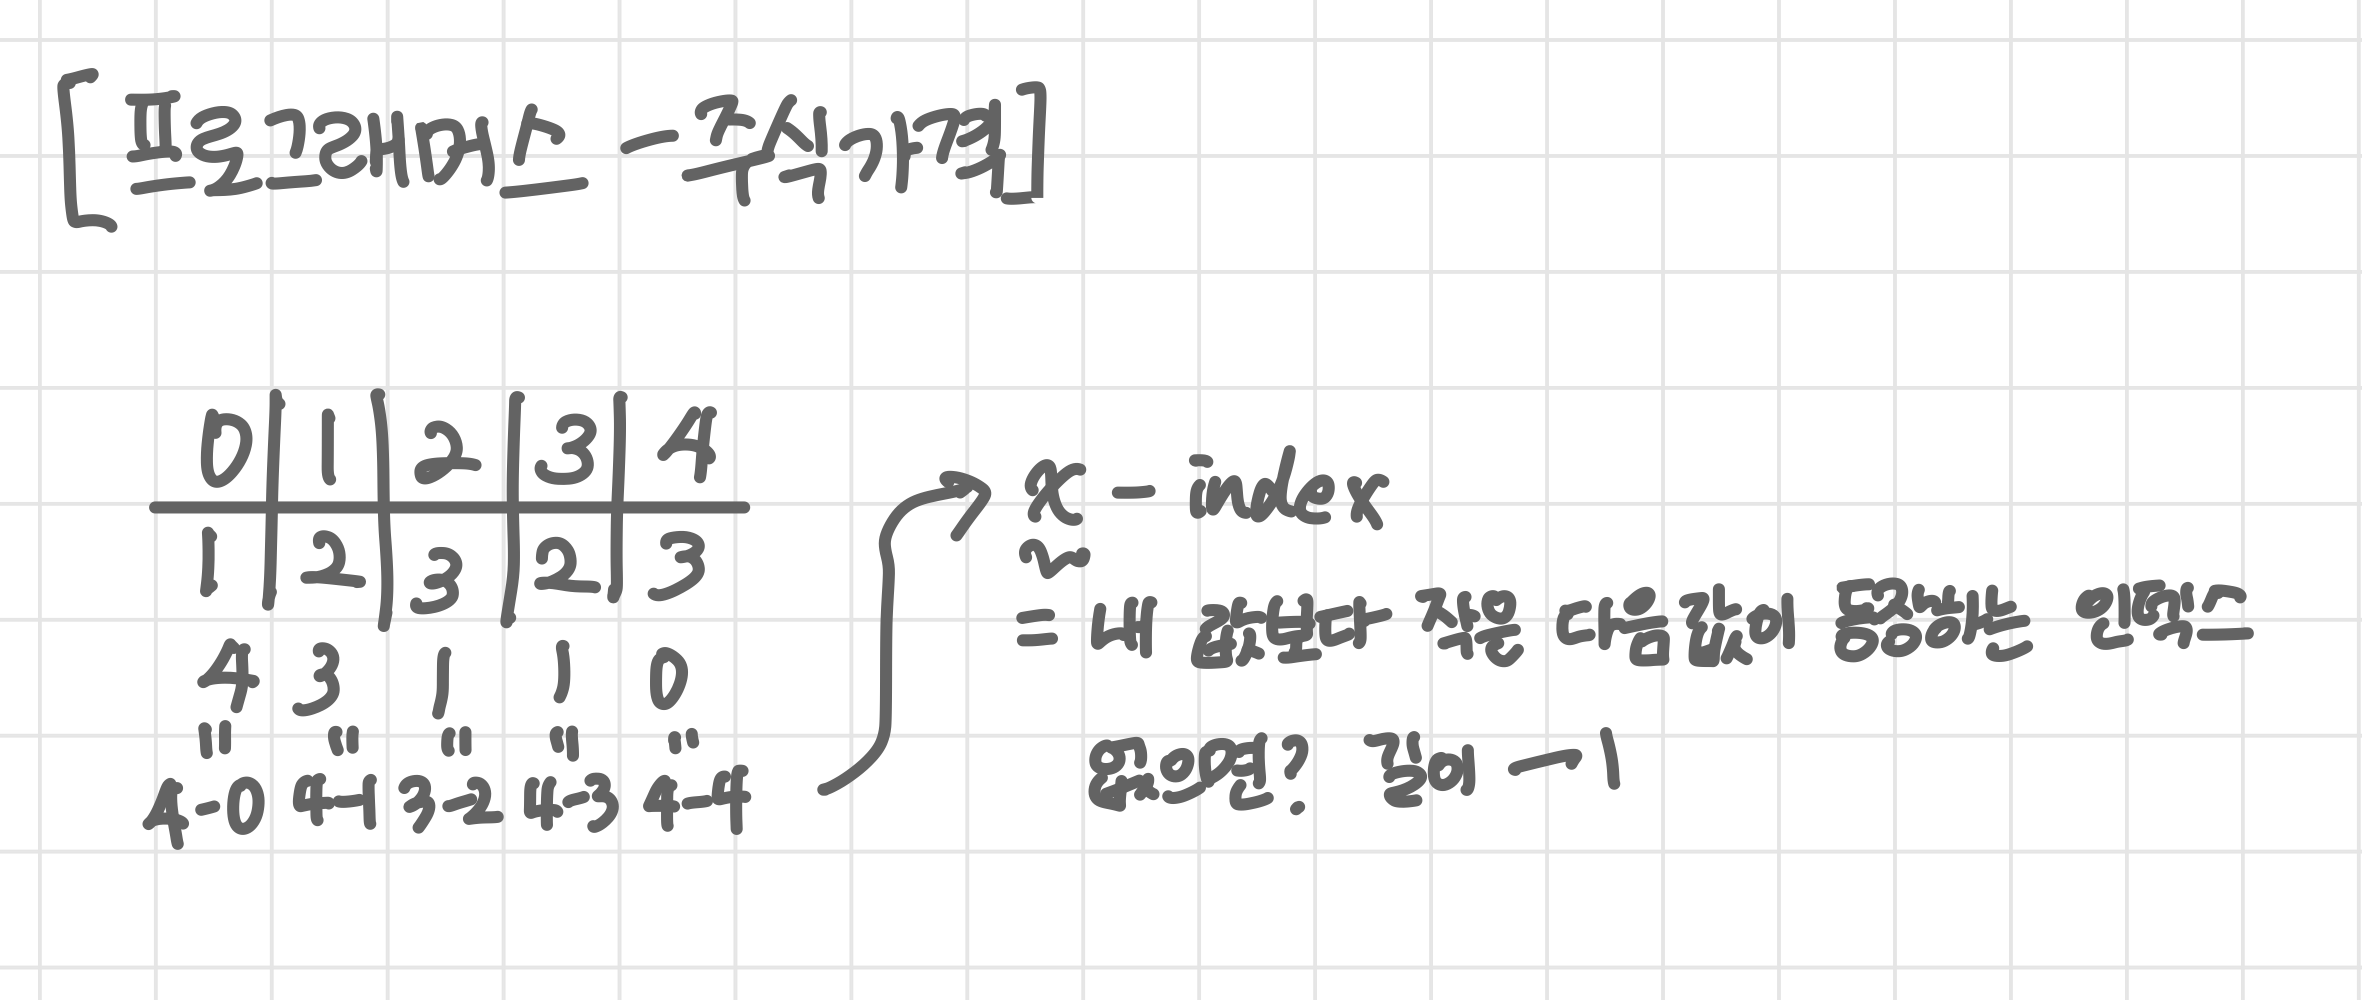 [프로그래머스 - 주식가격]
0 1 2 3 4
1 2 3 2 3
4 3 1 1 0
" " " " "
4-0 4-1 3-2 4-3 4-4
x - index
= 내 값보다 작은 다음값이 등장하는 인덱스
없으면? 길이 -1